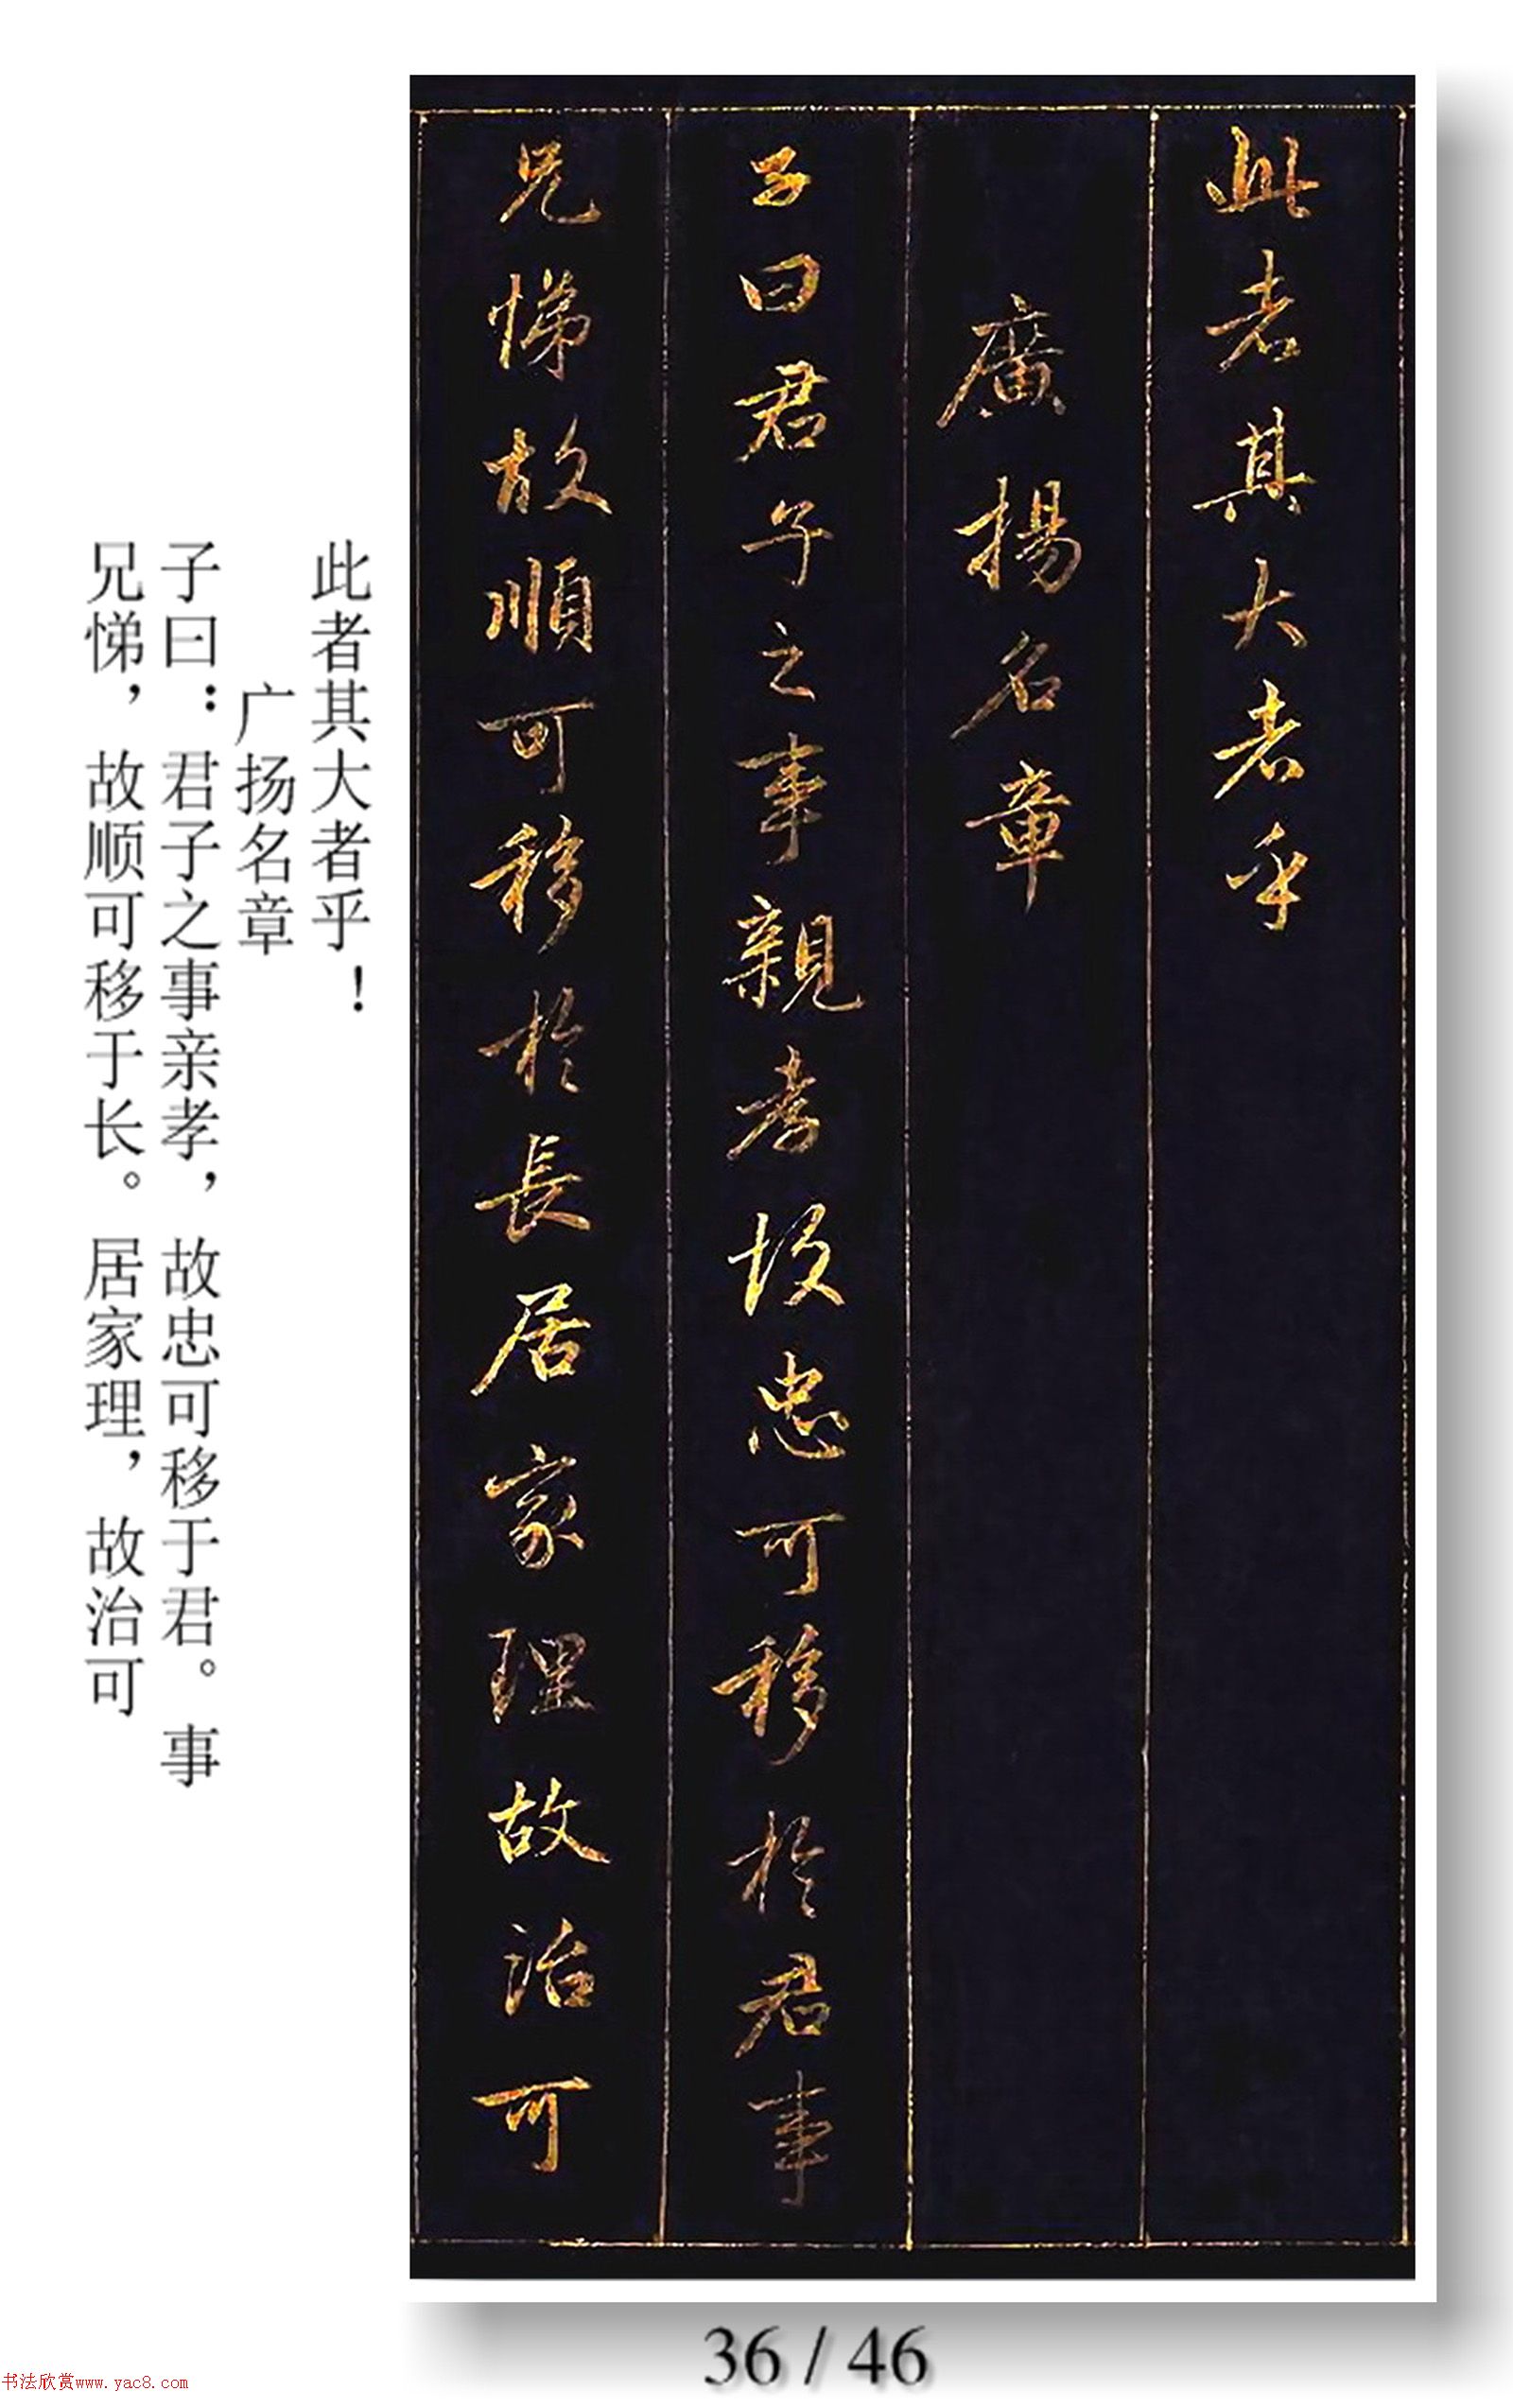 此者其大者乎
廣揚名章
子曰君子之事親孝故忠可移於君事
兄悌故順可移於長居家理故治可
此者其大者乎！
广扬名章
子曰：君子之事亲孝，故忠可移于君。事
兄悌，故顺可移于长。居家理，故治可
36 / 46
书法欣赏www.yac8.com